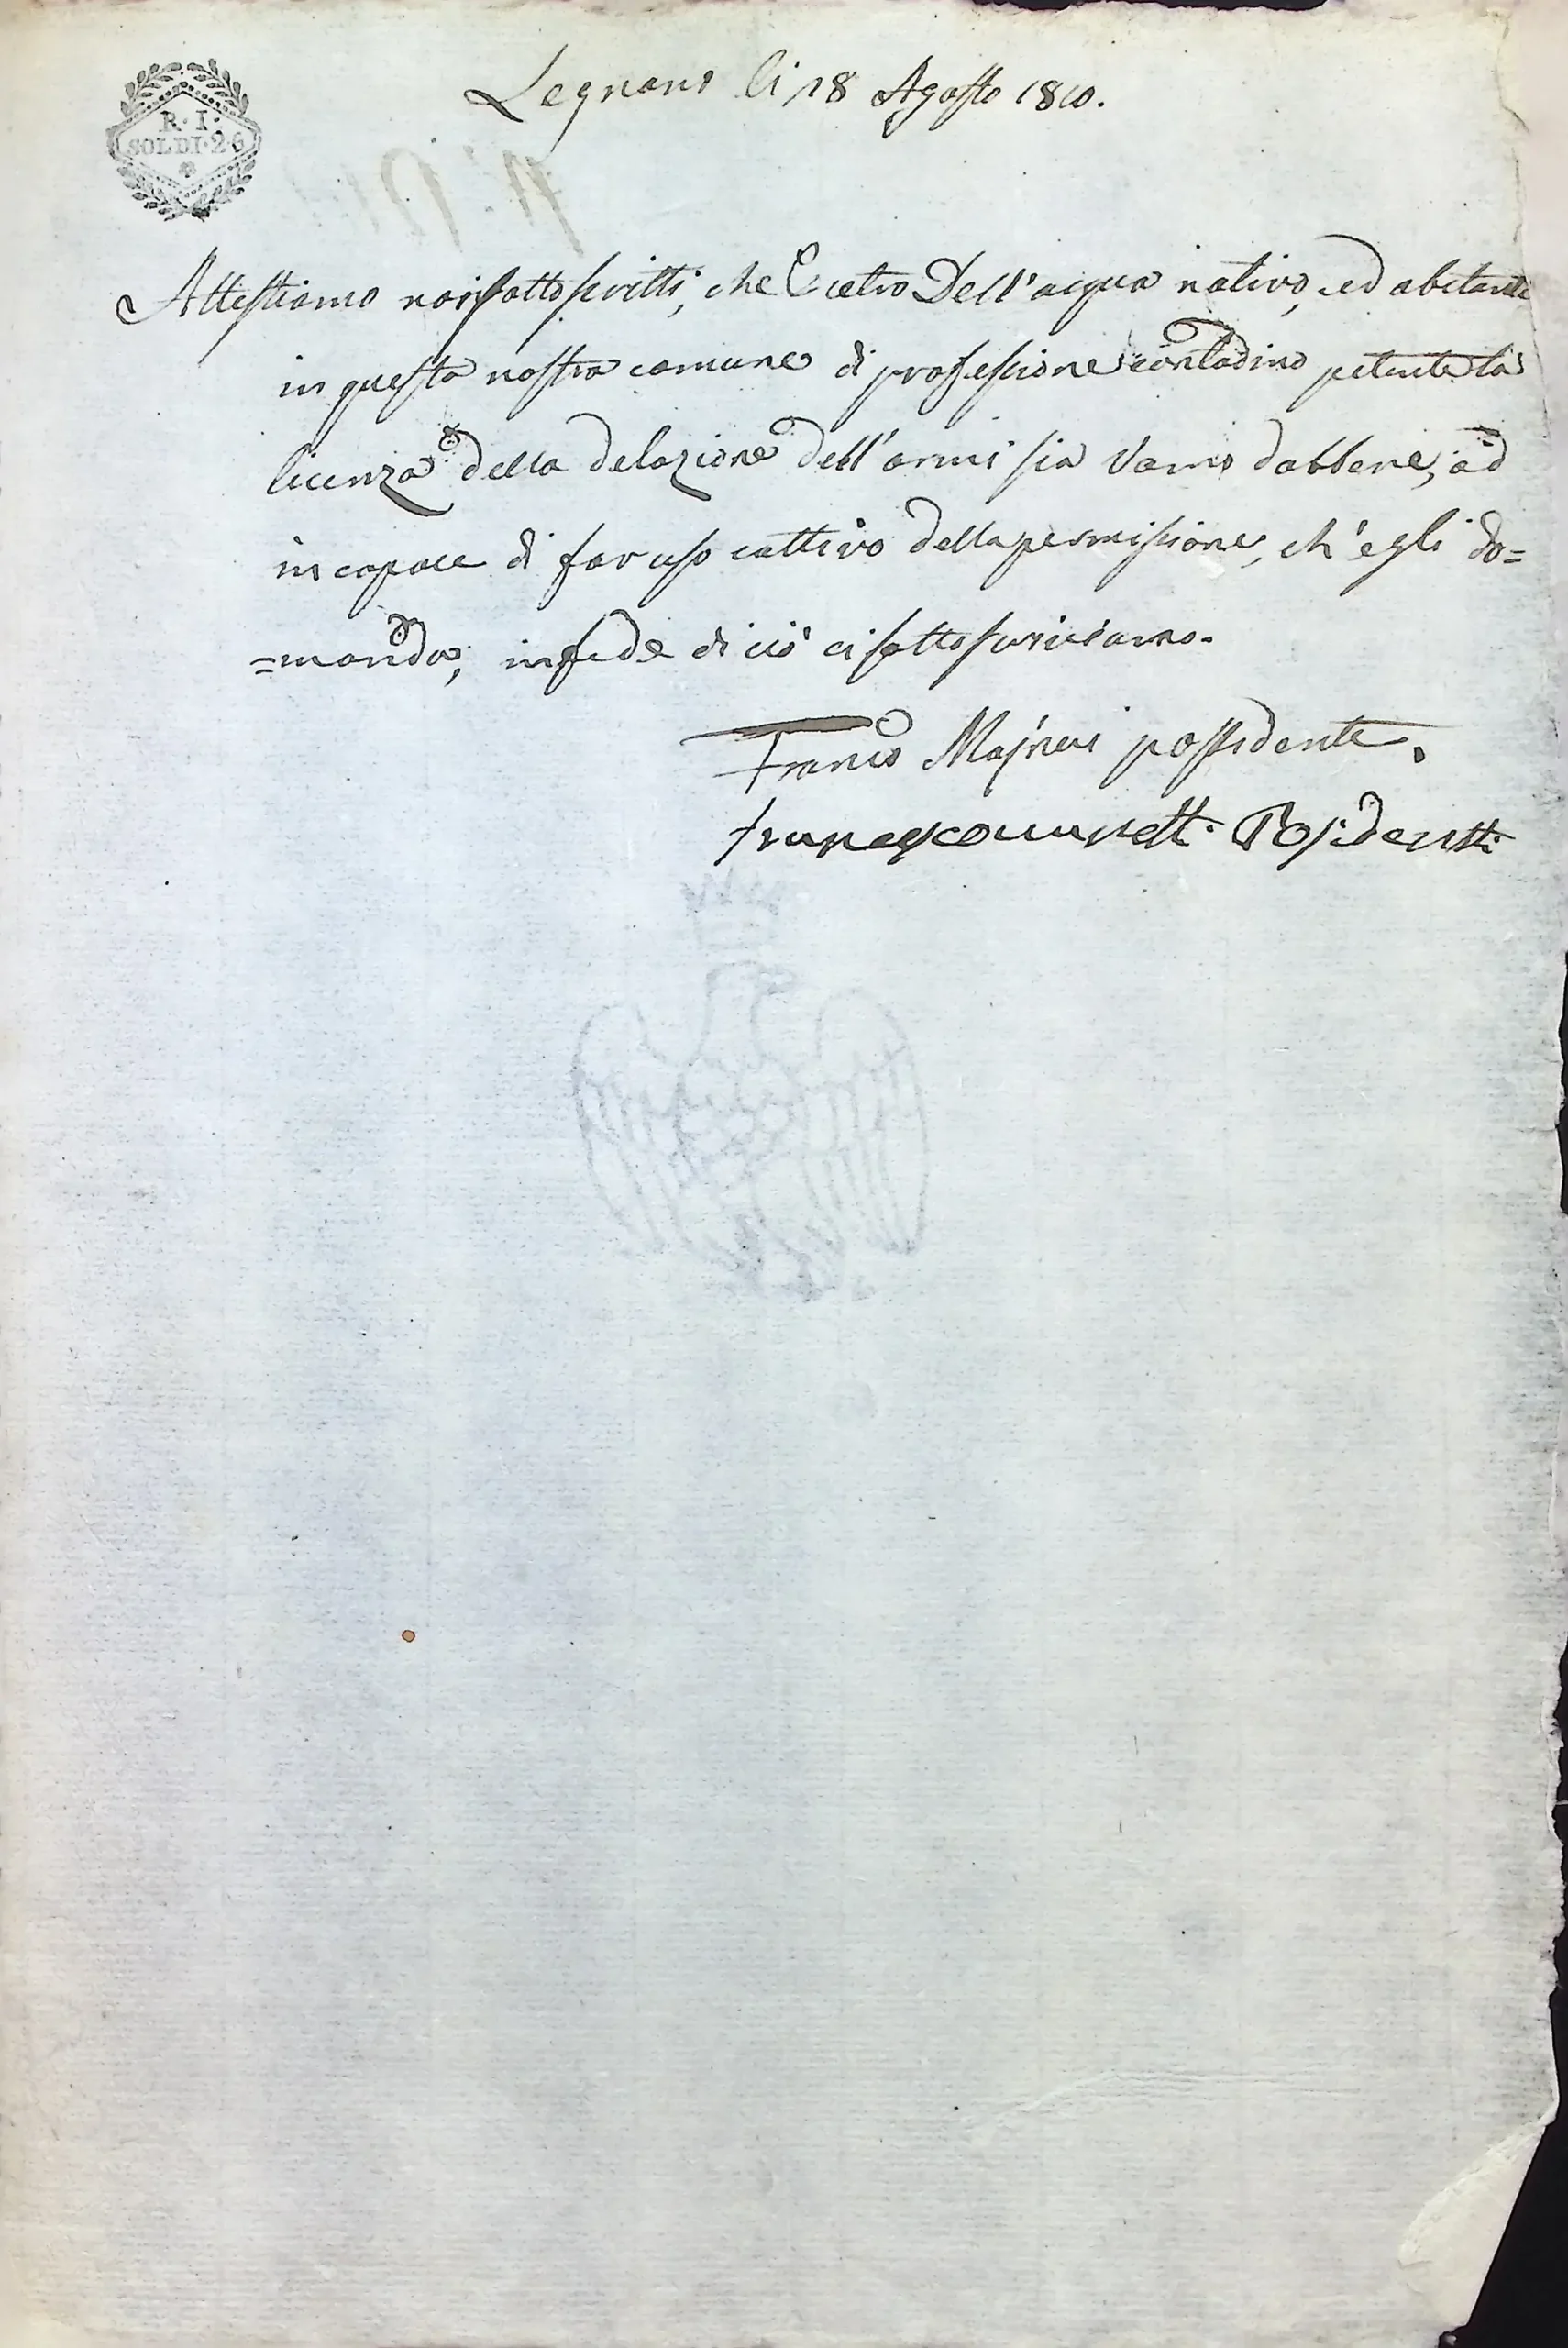 R. I.
SOLDI. 26
Legnano li 18 Agosto 1810.
Attestiamo noi sottoscritti, che Pietro Dell'acqua nativo, ed abitante
in questa nostra comune di professione contadino petente la
licenza della delazione dell'armi sia Vomo dabbene, ed
incapace di far uso cattivo della permissione, ch'egli do=
=manda; in fede di ciò ci sottoscriviamo.
possidente.
Posidentti